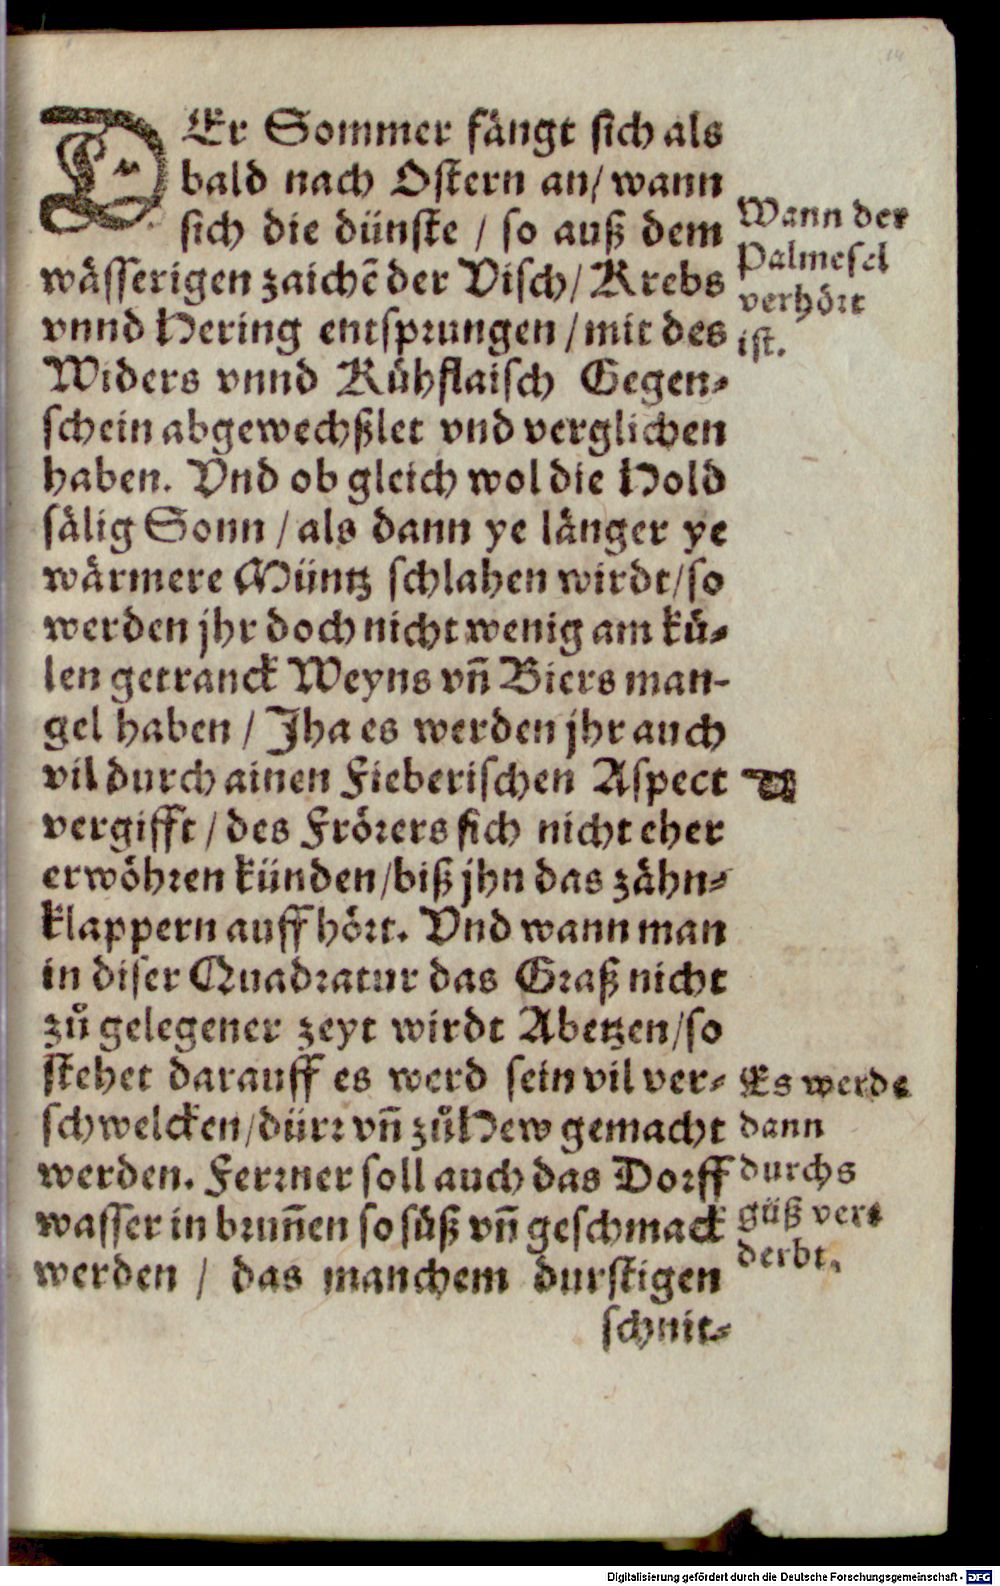 DEr Sommer fängt sich als
bald nach Ostern an/ wann
sich die dünste / so auß dem
wässerigen zaichē der Visch/ Krebs
vnnd Hering entsprungen / mit des
Widers vnnd Kühflaisch Gegen-
schein abgewechßlet vnd verglichen
haben. Vnd ob gleich wol die Hold
sälig Sonn / als dann ye länger ye
wärmere Müntz schlahen wirdt/ so
werden jhr doch nicht wenig am kü-
len getranck Weyns vn̄ Biers man-
gel haben / Jha es werden jhr auch
vil durch ainen Fieberischen Aspect
vergifft / des Frörers sich nicht eher
erwöhren künden/biß jhn das zähn-
klappern auff hört. Vnd wann man
in diser Quadratur das Graß nicht
zů gelegener zeyt wirdt Abetzen/so
stehet darauff es werd sein vil ver-
schwelcken/dürr vn̄ zů Hew gemacht
werden. Ferrner soll auch das Dorff
wasser in brun̄en so süß vn̄ geschmack
werden / das manchem durstigen
schnit-
Wann der
Palmesel
verhört
ist.
☚
Es werde
dann
durchs
güß ver-
derbt.
Digitalisierung gefördert durch die Deutsche Forschungsgemeinschaft - DFG